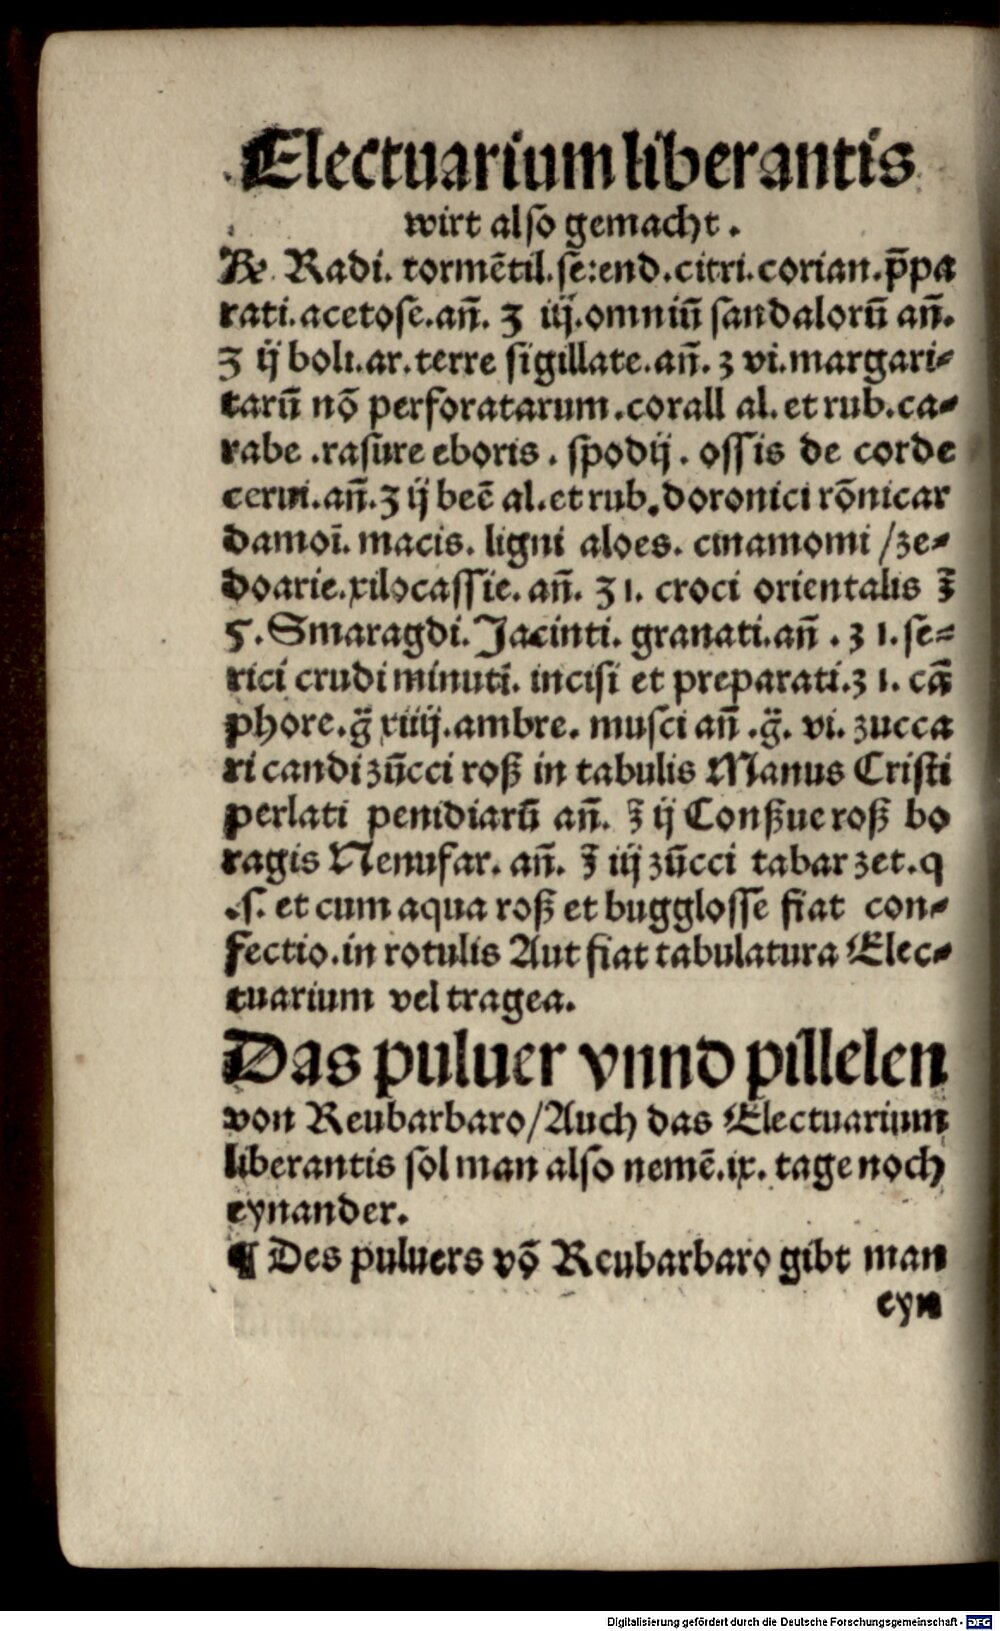 Electuarium liberantis
wirt also gemacht.
℞ Radi. tormētil. sē:end. citri. corian. p̄pa
rati. acetose. añ. ʒ iij. omniū sandalorū añ.
ʒ ij boli. ar. terre sigillate. añ. ʒ vi. margari⸗
tarū nō perforatarum. corall al. et rub. ca⸗
rabe . rasure eboris . spodij . ossis de corde
cerui. añ. ʒ ij beē al. et rub. doronici rōnicar
damoī. macis. ligni aloes. cinamomi / ze⸗
doarie. xilocassie. añ. ʒ i. croci orientalis ℥
5. Smaragdi. Jacinti. granati. añ . ʒ i. se⸗
rici crudi minuti. incisi et preparati. ʒ i. cā
phore. g̈ xiiij. ambre. musci añ . g̈. vi. zucca
ri candi zūcci roß in tabulis Manus Cristi
perlati penidiarū añ. ℥ ij Conßue roß bo
ragis Nenufar. añ. ℥ iij zūcci tabarzet. q
.s. et cum aqua roß et bugglosse fiat con⸗
fectio. in rotulis Aut fiat tabulatura Elec⸗
tuarium vel tragea.
Das puluer vnnd pillelen
von Reubarbaro / Auch das Electuarium
liberantis sol man also nemē. ix. tage noch
eynander.
¶ Des puluers vō Reubarbaro gibt man
eyn
Digitalisierung gefördert durch die Deutsche Forschungsgemeinschaft - DFG